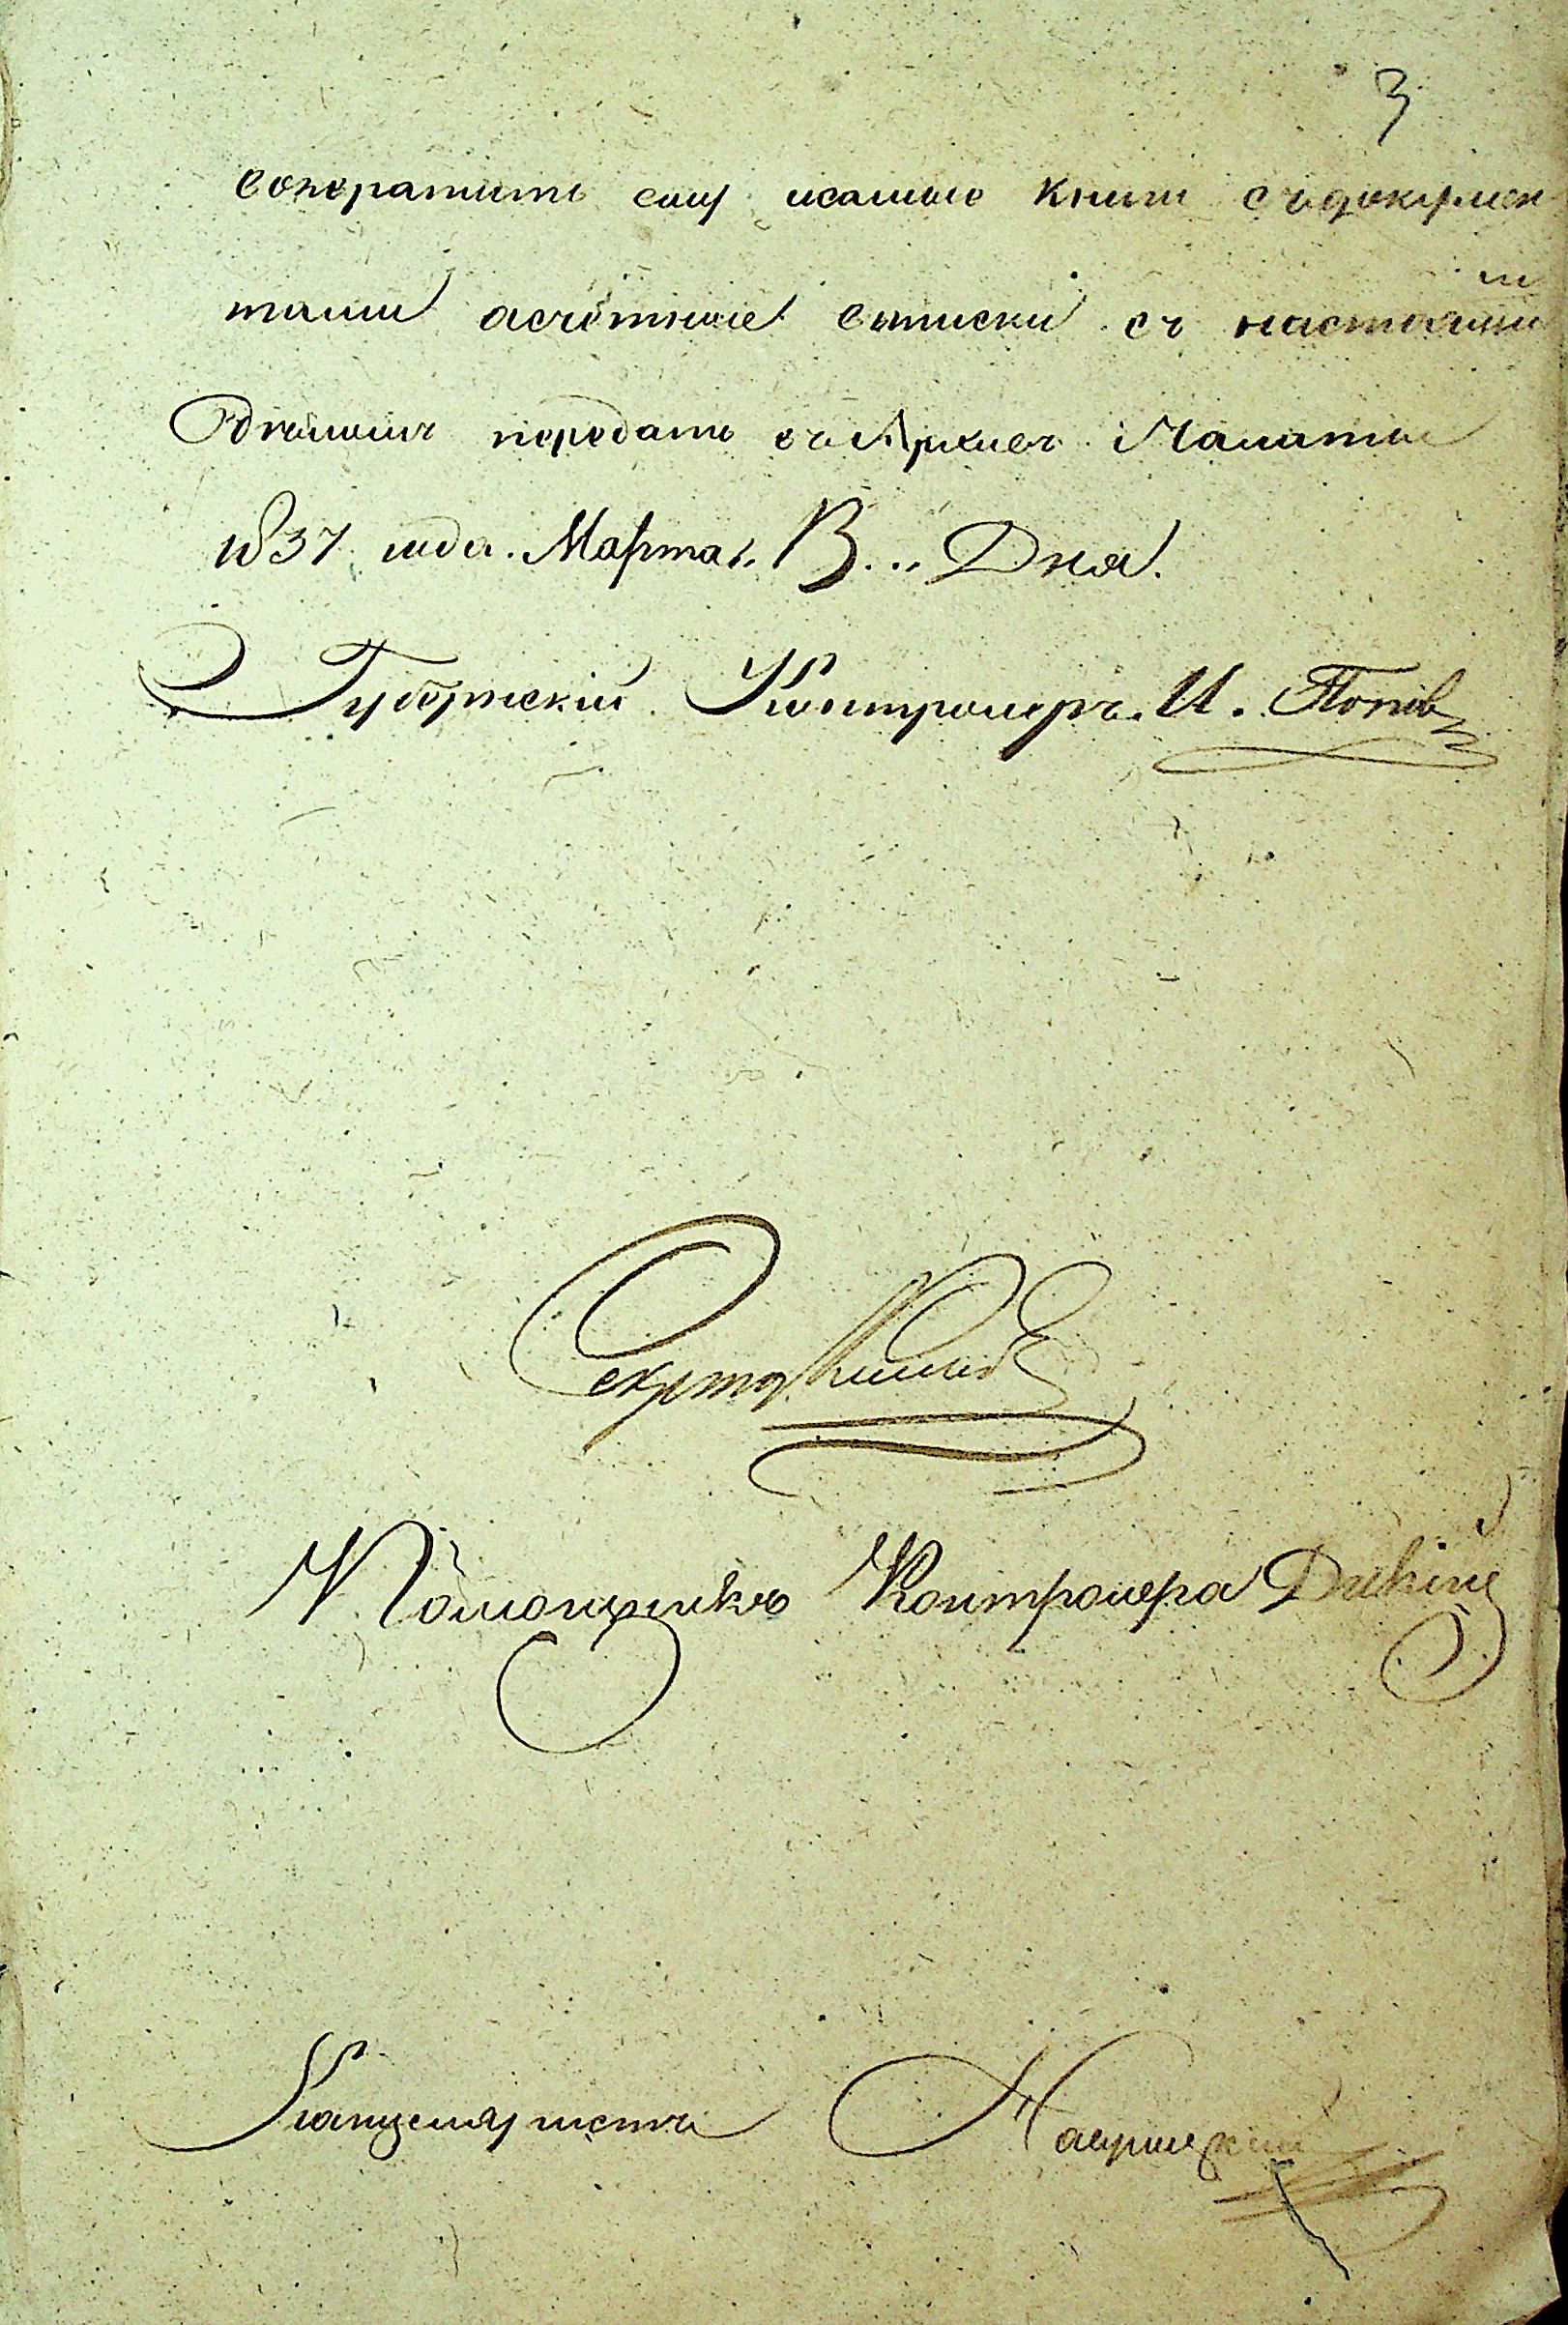 3
возвратить ему самые книги съ докумен
тами а счётные выписки съ настоящи
м
Дѣломъ передать въ Архивъ Палаты
1837 года. Марта. 13... Дня.
Губернскій Контролеръ. И. Попов
Секретарь
Помощникъ Контролера Дикій
Канцеляристъ